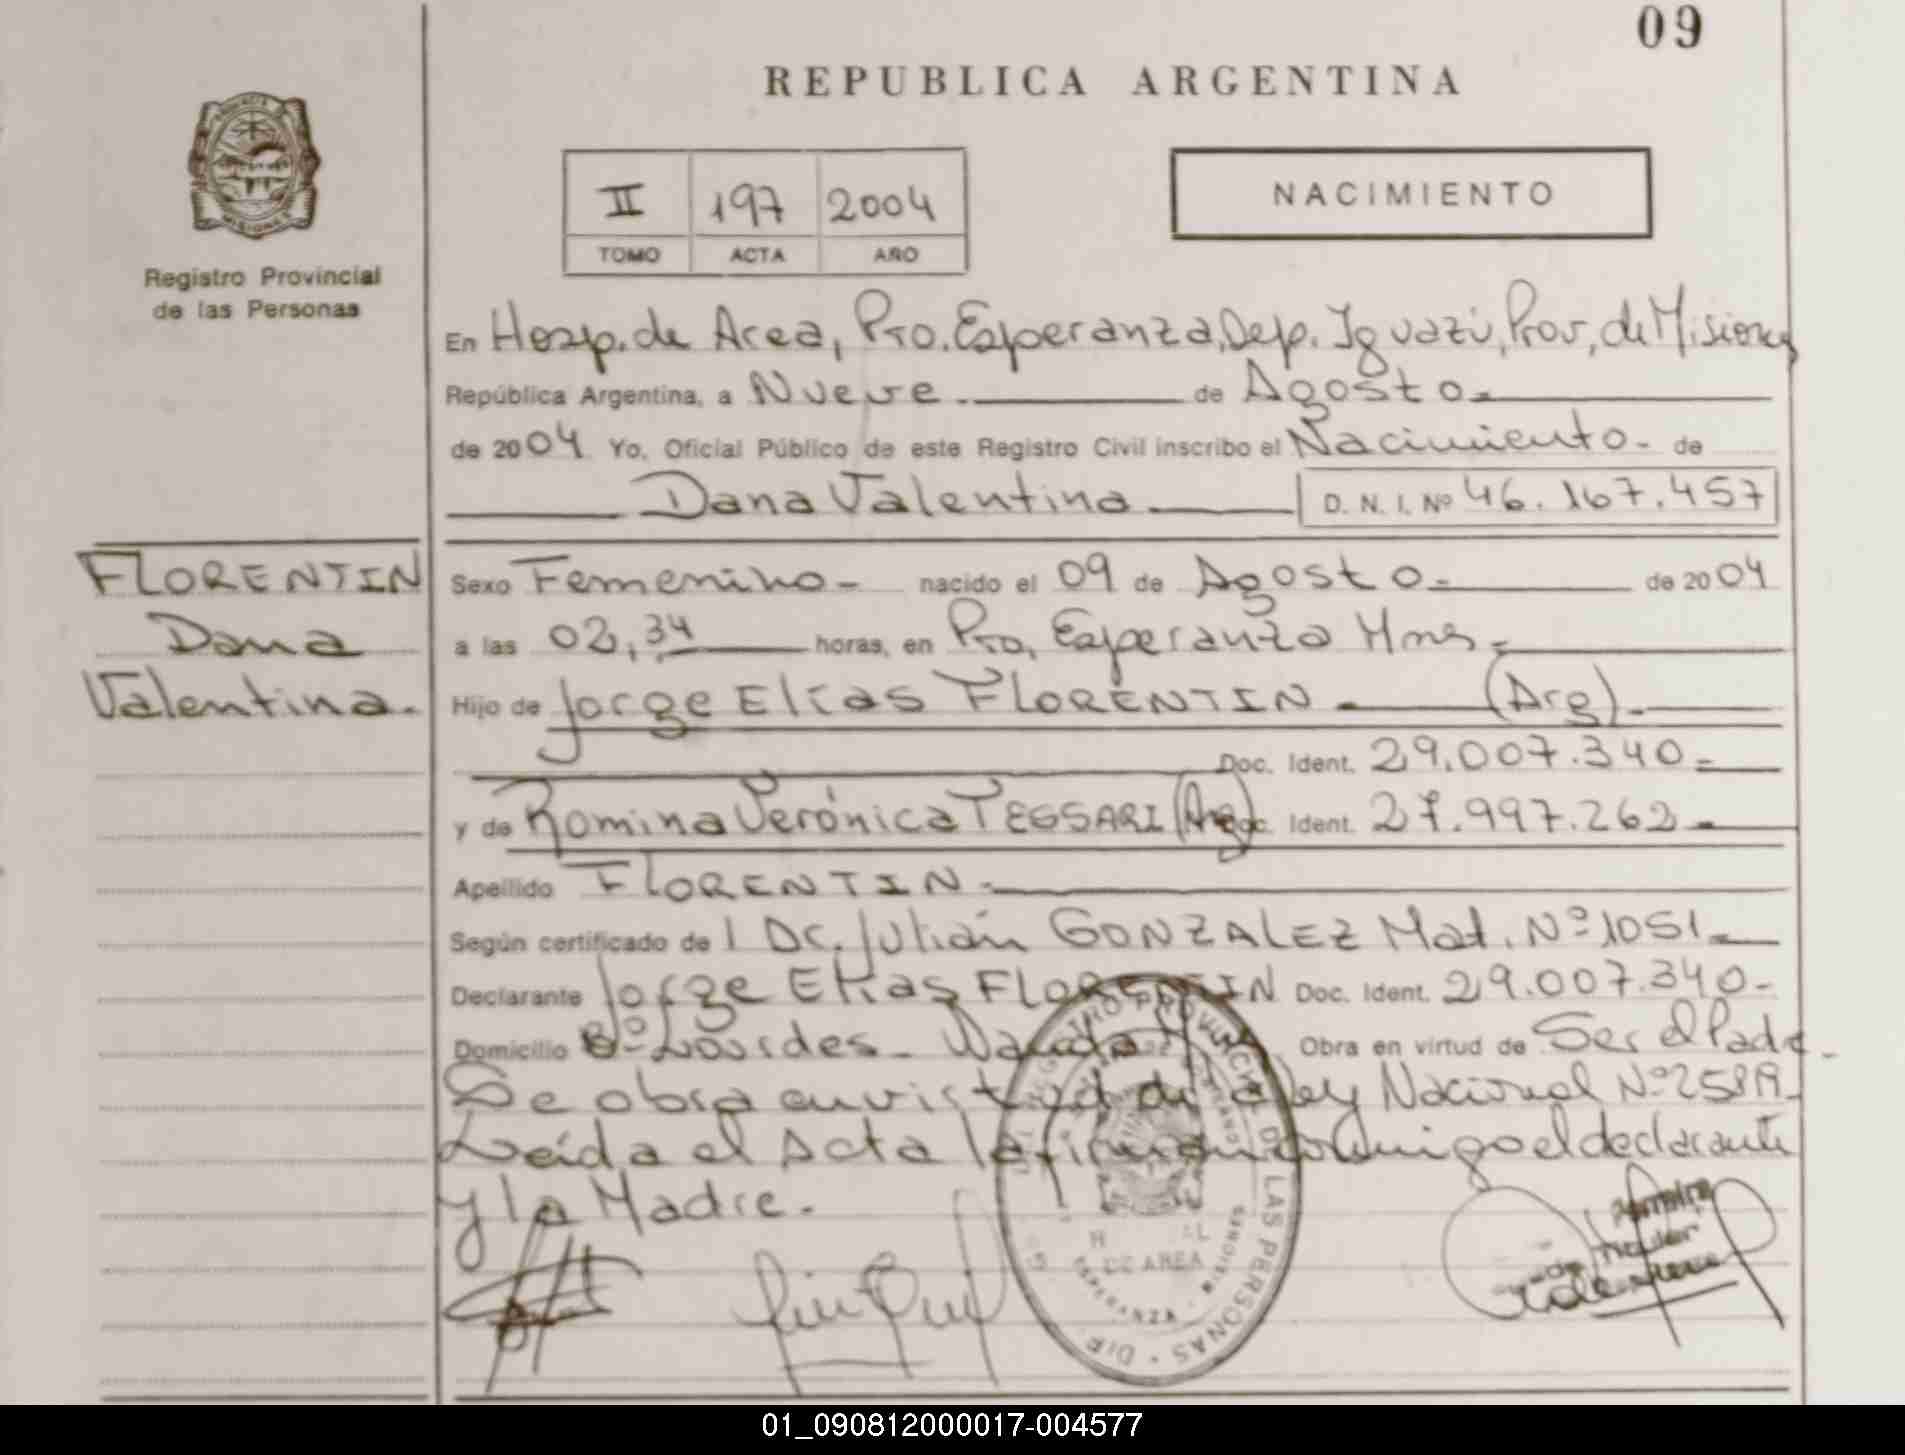 09
REPUBLICA ARGENTINA
II 197 2004
TOMO ACTA AÑO
NACIMIENTO
MISIONES
Registro Provincial
de las Personas
En Hosp. de Area, Pto. Esperanza, Dep. Iguazú, Prov, de Misiones
República Argentina, a Nueve. de Agosto.
de 2004 Yo, Oficial Público de este Registro Civil inscribo el Nacimiento. de
Dana Valentina D. N. I. Nº 46.167.457
FLORENTIN
Dana
Valentina.
Sexo Femenino- nacido el 09 de Agosto. de 2004
a las 02,34 horas, en Pto, Esperanza Mnes.
Hijo de Jorge Elías FLORENTIN (Arg).
Doc. Ident. 29.007.340-
y de Romina Verónica TESSARI (Arg) Doc. Ident. 27.997.262-
Apellido FLORENTIN.
Según certificado de l Dr. Julián GONZALEZ Mat. Nº 1051-
Declarante Jorge Elías FLORENTIN Doc. Ident. 29.007.340-
Domicilio Bº Lourdes- Wanda Obra en virtud de Ser el Padre-
Se obra en virtud de la Ley Nacional Nº
Leída el Acta la firman conmigo el declarante
y la Madre.
REGISTRO PROVINCIAL DE LAS PERSONAS
DE AREA
ESPERANZA
01_090812000017-004577